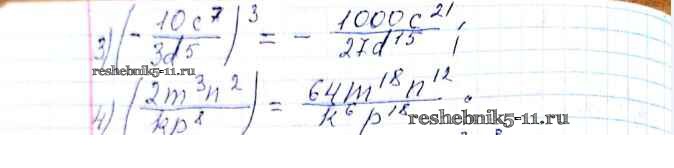 3) (- 10c⁷ / 3d⁵)³ = - 1000c²¹ / 27d¹⁵ ;
reshebnik5-11.ru
4) (2m³n² / kp⁸) = 64m¹⁸n¹² / k⁶p¹⁸ ;
reshebnik5-11.ru